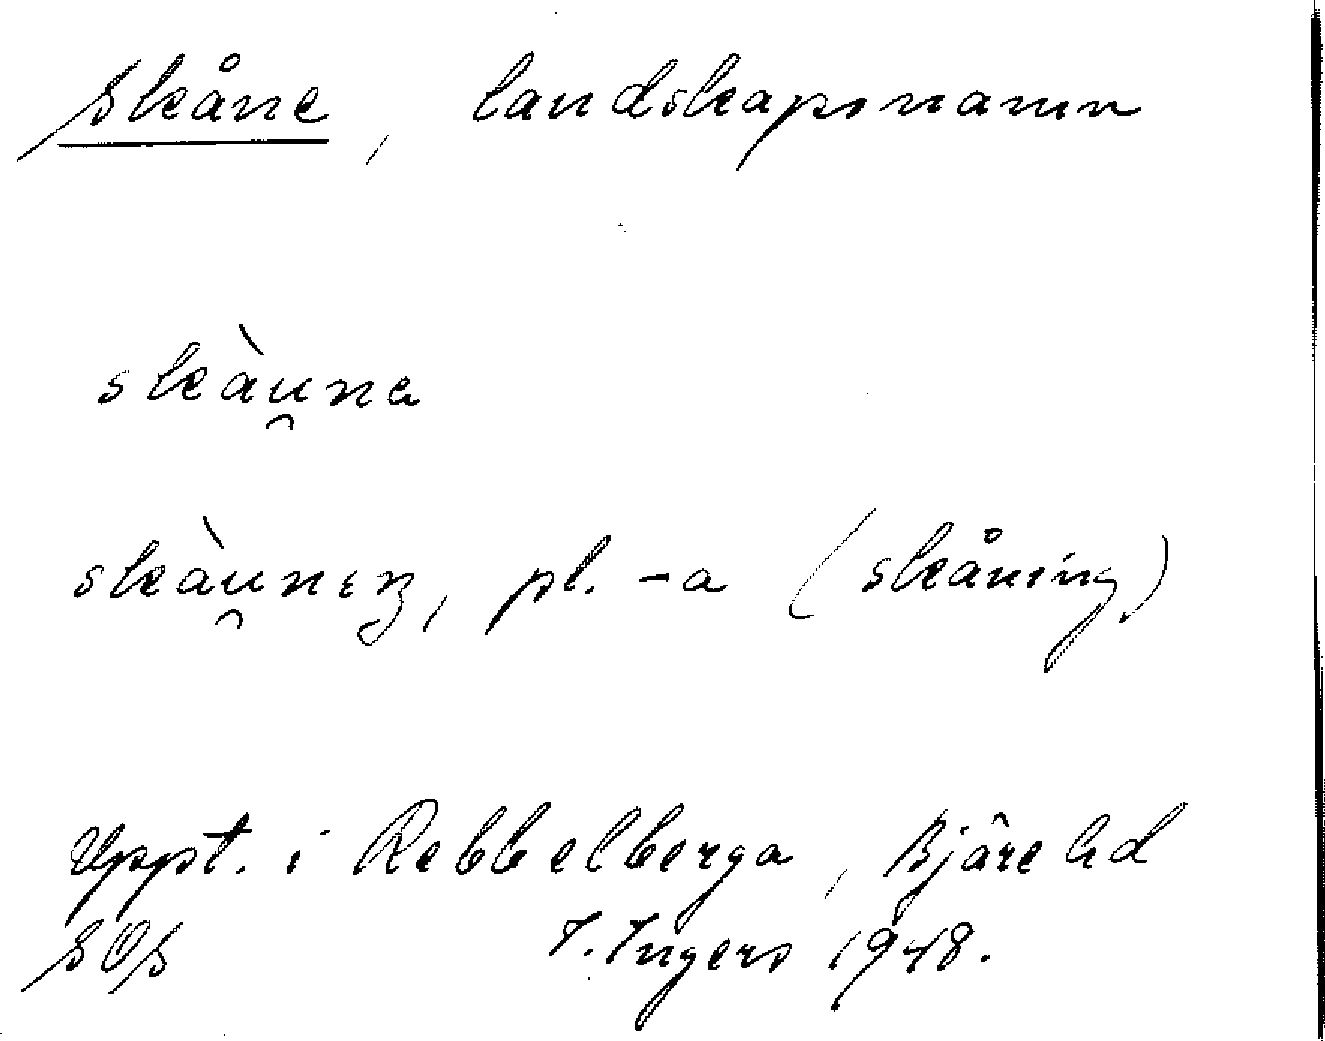 Skåne, landskapsnamn
skàu̯na
skàu̯nıŋ, pl. -a (skåning.)
Uppt. i Rebbelberga, Bjäre hd
SOS I. Ingers 1948.